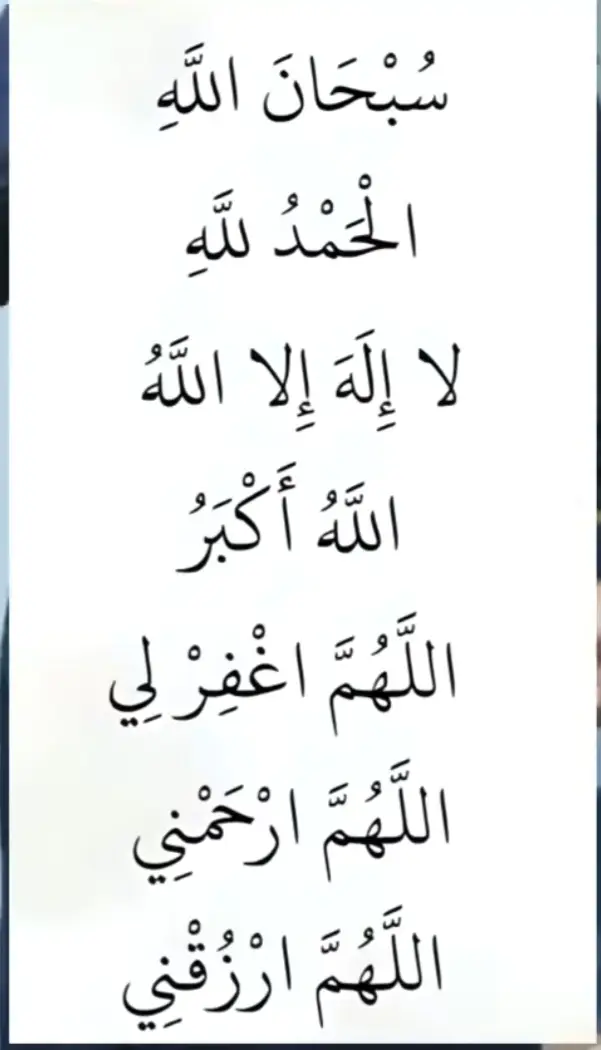 سُبْحَانَ اللَّهِ
الْحَمْدُ للَّهِ
لا إِلَهَ إِلا اللَّهُ
اللَّهُ أَكْبَرُ
اللَّهُمَّ اغْفِرْ لِي
اللَّهُمَّ ارْحَمْنِي
اللَّهُمَّ ارْزُقْنِي